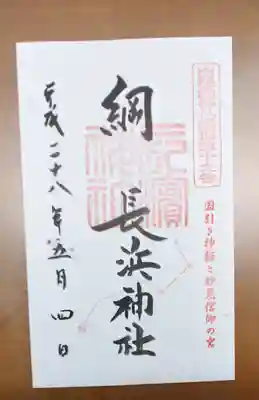 国引き神話と妙見信仰の宮
綱 長浜神社
平成二十八年五月四日